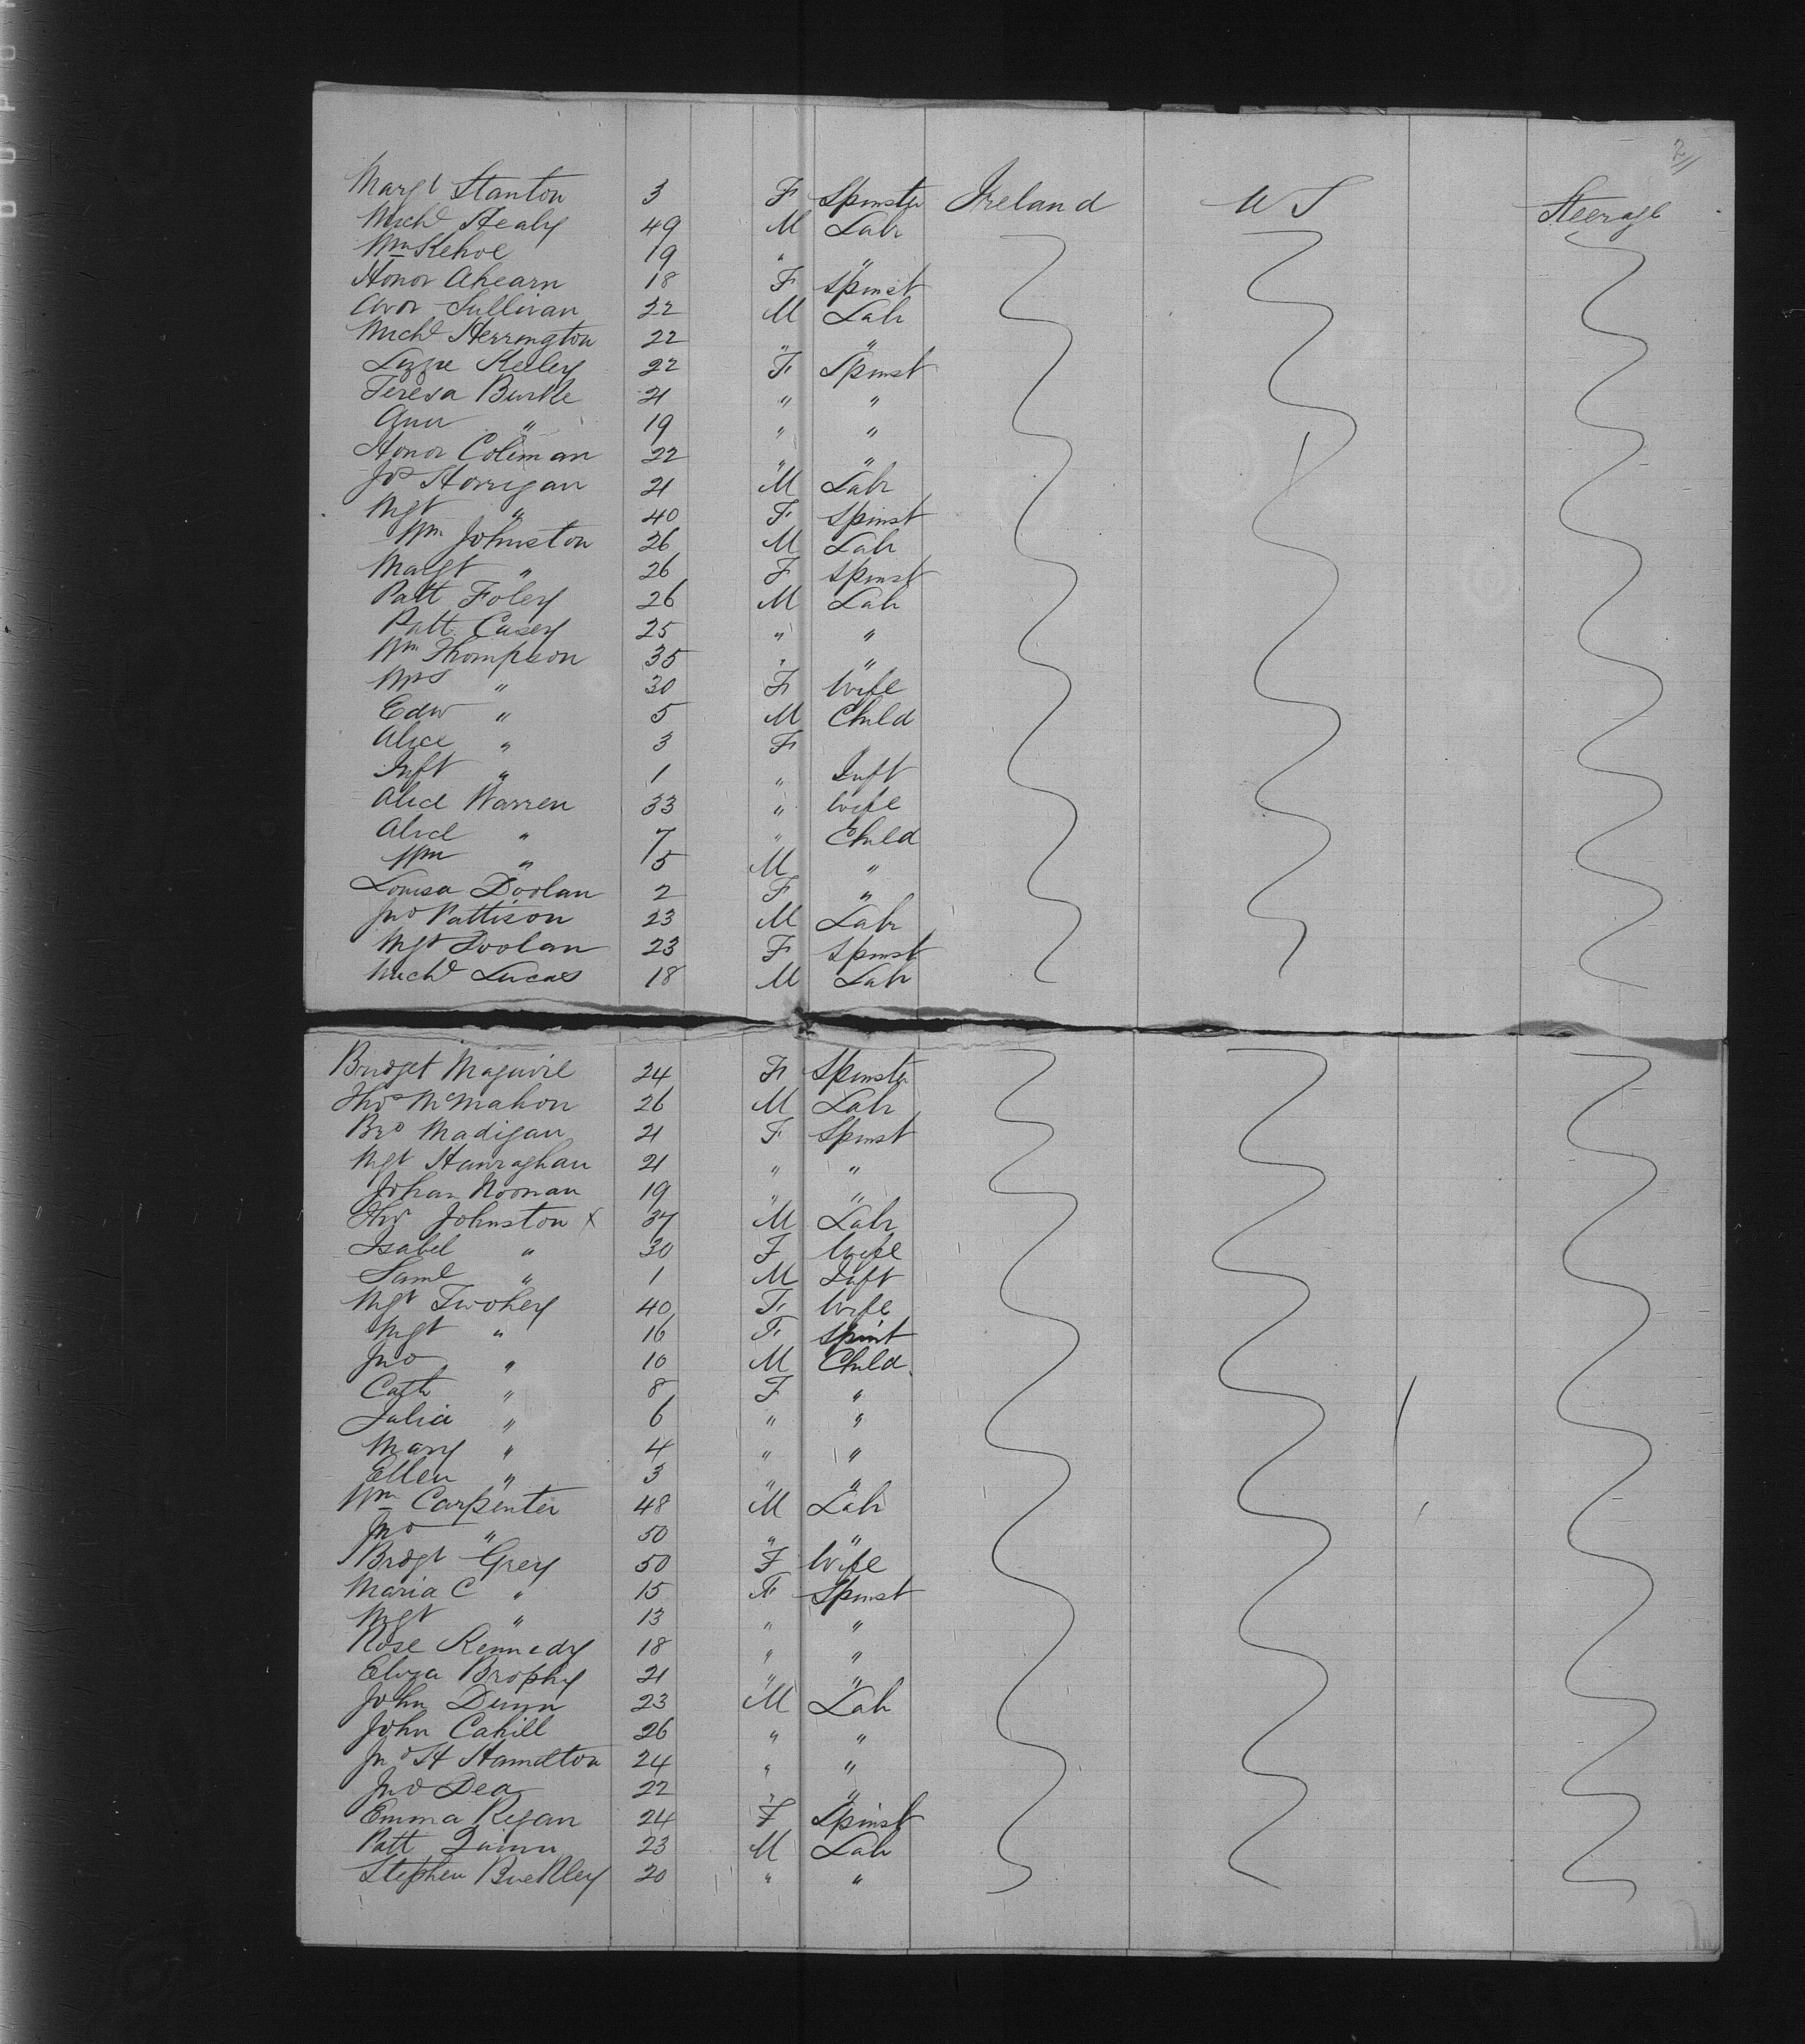 2/
Margt Stanton 3 F Spinster Ireland U S Steerage
Michl Healy 49 M Labr
Wm Kehoe 19 " "
Honor Ahearn 18 F Spinst
Sullivan 22 M Labr
Michl Herrington 22 " "
Lizzie Kelley 22 F Spinst
Teresa Burke 21 " "
Ann " 19 " "
Honor Coleman 22 " "
Jos Horrigan 21 M Labr
Mgt " 40 F Spinst
Wm Johnston 26 M Labr
Margt " 26 F Spinst
Patt Foley 26 M Labr
Patt Casey 25 " "
Wm Thompson 35 " "
Mrs " 30 F Wife
Edw " 5 M Child
Alice " 3 F
Inft " 1 " Inft
Alice Warren 33 " Wife
Alice " 7 " Child
Wm " 5 M "
Louisa Doolan 2 F "
Jno Pattison 23 M Labr
Mgt Doolan 23 F Spinst
Michl Lucas 18 M Labr
Bridget Maguire 24 F Spinster
Thos McMahon 26 M Labr
Brd Madigan 21 F Spinst
Mgt Hanraghan 21 " "
Johan Noonan 19 " "
Thos Johnston x 37 M Labr
Isabel " 30 F Wife
Saml " 1 M Inft
Mgt Twohey 40 F Wife
Mgt " 16 F Spinst
Jno " 10 M Child
Cath " 8 F "
Julia " 6 " "
Mary " 4 " "
Ellen " 3 " "
Wm Carpenter 48 M Labr
Jno " 50 " "
Bridgt Grey 50 F Wife
Maria C " 15 F Spinst
Mgt " 13 " "
Rose Kennedy 18 " "
Eliza Brophy 21 " "
John Dunn 23 M Lab
John Cahill 26 " "
Jno H Hamilton 24 " "
Jno Dea 22 " "
Emma Regan 24 F Spinst
Patt Quinn 23 M Lab
Stephen Buckley 20 " "